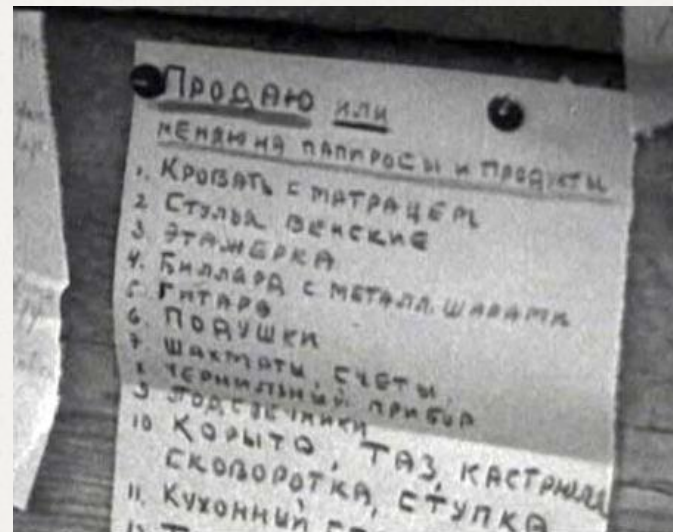 ПРОДАЮ ИЛИ
МЕНЯЮ НА ПАПИРОСЫ И ПРОДУКТЫ
1. КРОВАТЬ С МАТРАЦЕМ
2 СТУЛЬЯ ВЕНСКИЕ
3. ЭТАЖЕРКА
4. БИЛЛАРД С МЕТАЛЛ. ШАРАМИ
5. ГИТАРА
6. ПОДУШКИ
7. ШАХМАТЫ, СЧЕТЫ,
8 ЧЕРНИЛЬНЫЙ ПРИБОР
9 ПОДСВЕЧНИКИ
10 КОРЫТО, ТАЗ, КАСТРЮЛЯ
СКОВОРОТКА, СТУПКА
11. КУХОННЫЙ
12